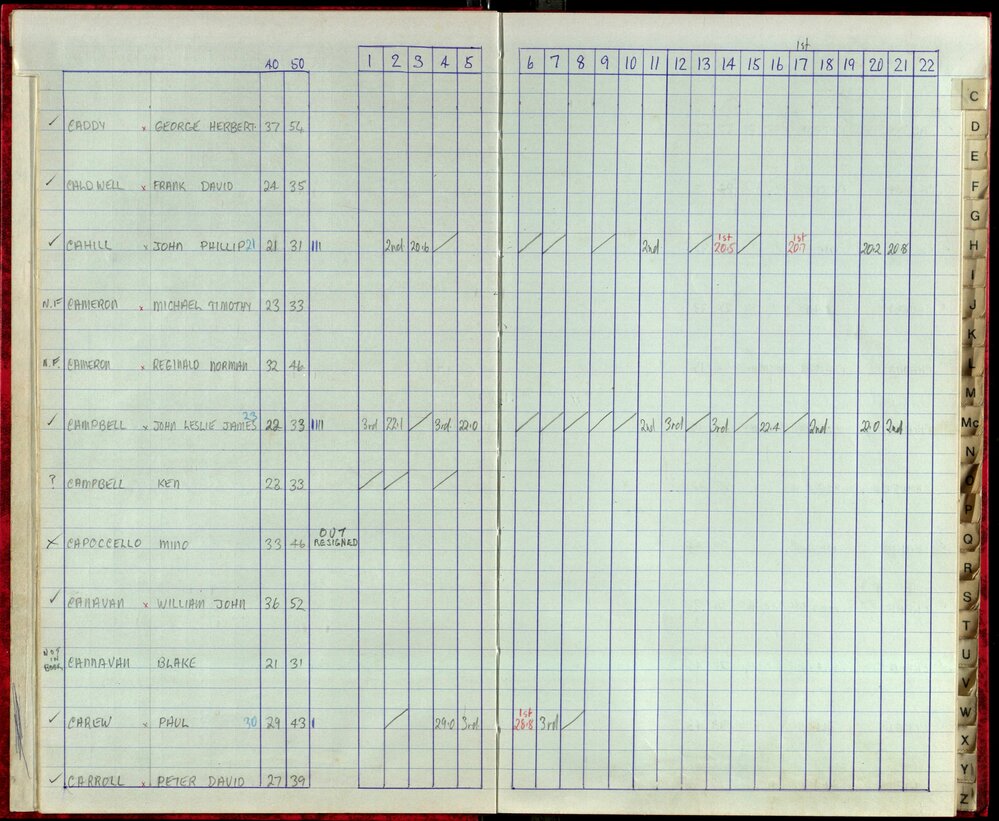 1st
40 50 1 2 3 4 5 6 7 8 9 10 11 12 13 14 15 16 17 18 19 20 21 22
✓ CADDY x GEORGE HERBERT 37 54
✓ CALDWELL x FRANK DAVID 24 35
✓ CAHILL x JOHN PHILLIP 21 21 31 |||| 2nd 20.6 / / / / 2nd / 1st 20.5 / 1st 20.7 20.2 20.8
N.F CAMERON x MICHAEL TIMOTHY 23 33
N.F. CAMERON x REGINALD NORMAN 32 46
✓ CAMPBELL x JOHN LESLIE JAMES 23 22 33 |||| 3rd 22.1 / 3rd 22.0 / / / / / 2nd 3rd / 3rd / 22.4 / 2nd 22.0 2nd
? CAMPBELL KEN 23 33 / / /
x CAPOCCELLO MINO 33 46 OUT RESIGNED
✓ CANAVAN x WILLIAM JOHN 36 52
NOT IN BOOK CANNAVAN BLAKE 21 31
✓ CAREW x PAUL 30 29 43 | / 29.0 3rd 1st 28.8 3rd /
✓ CARROLL x PETER DAVID 27 39
C
D
E
F
G
H
I
J
K
L
M
Mc
N
O
P
Q
R
S
T
U
V
W
X
Y
Z